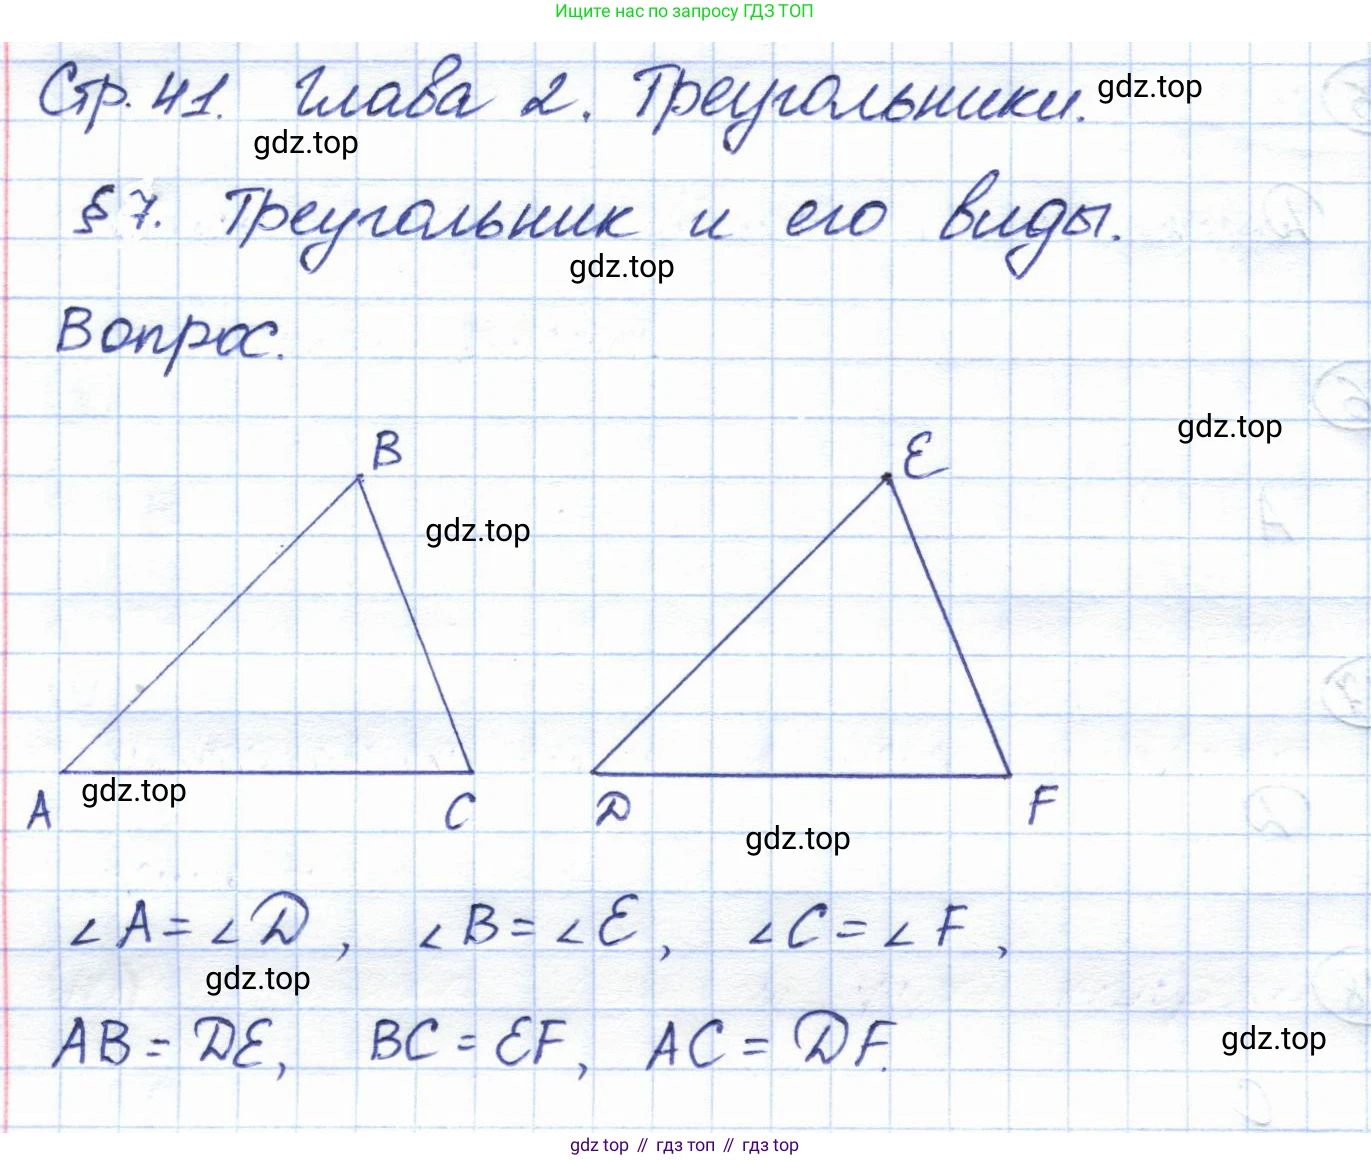 Ищите нас по запросу ГДЗ ТОП
Стр. 41. Глава 2. Треугольники.
gdz.top
gdz.top
§ 7. Треугольник и его виды.
gdz.top
Вопрос.
gdz.top
B
E
gdz.top
gdz.top
A
C
D
F
gdz.top
∠A = ∠D, ∠B = ∠E, ∠C = ∠F,
gdz.top
AB = DE, BC = EF, AC = DF.
gdz.top
gdz top // гдз топ // гдз top